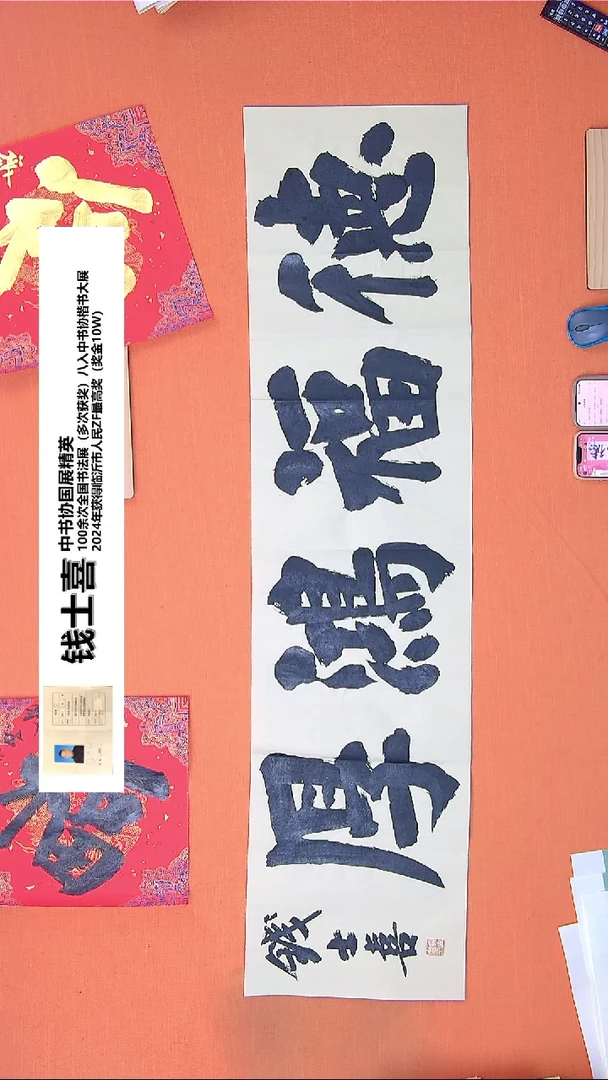 德福鴻厚
錢士喜
钱士喜
中书协国展精英
100余次全国书法展（多次获奖）八入中书协楷书大展
2024年获得临沂市人民ZF最高奖（奖金10W）
福